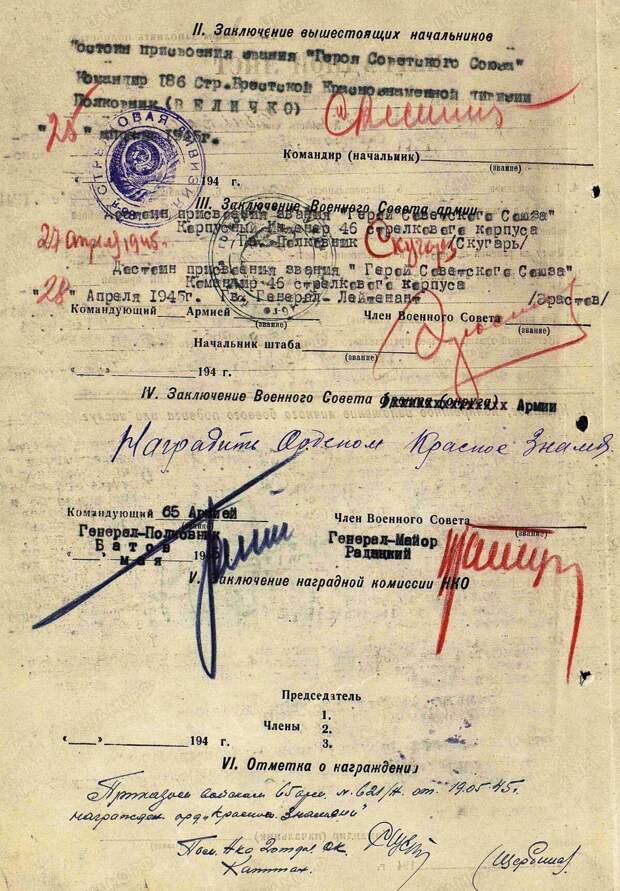 II. Заключение вышестоящих начальников
"остоин присвоения звания "Героя Советского Союза"
Командир 186 Стр.Брестской Краснознаменной дивизии
Полковник (ВЕЛИЧКО)
"25" апреля 1945г.
Командир (начальник)
(звание)
194 г.
СТРЕЛКОВАЯ ДИВИЗИЯ
III. Заключение Военного Совета армии
Достоин присвоения звания "Герой Советского Союза"
Корпусный Инженер 46 стрелкового корпуса
27 апреля 1945г. Гв. Полковник Скугарь /Скугарь/
Достоин присвоения звания " Герой Советского Союза"
Командир 46 стрелкового корпуса
"28" Апреля 1945г. Гв. Генерал- Лейтенант /Эрастов/
Командующий Армией Член Военного Совета
(звание) (звание)
Начальник штаба
(звание)
" " 194 г.
IV. Заключение Военного Совета фронта (округа) Армии
Наградить Орденом Красное Знамя.
Командующий 65 Армией Член Военного Совета
(звание) (звание)
Генерал-Полковник Генерал-Майор
Батов Радецкий
" " мая 194
V. Заключение наградной комиссии НКО
Председатель
1.
Члены 2.
3.
" " 194 г.
VI. Отметка о награждении
Приказом войскам 65 арм. №621/н от 19.05.45г.
награжден орд. "Красное Знамя"
Пом. Нач. 2 отдел. ОК
Капитан (Щербина)